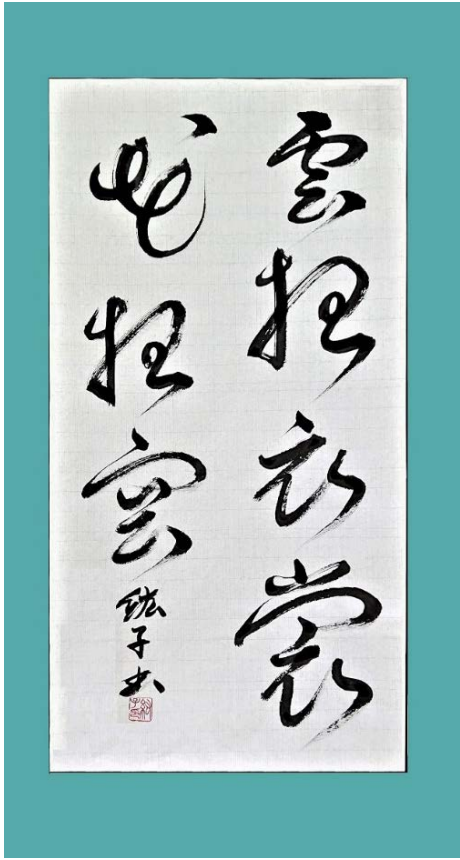 雲想衣裳
花想容
紘子书